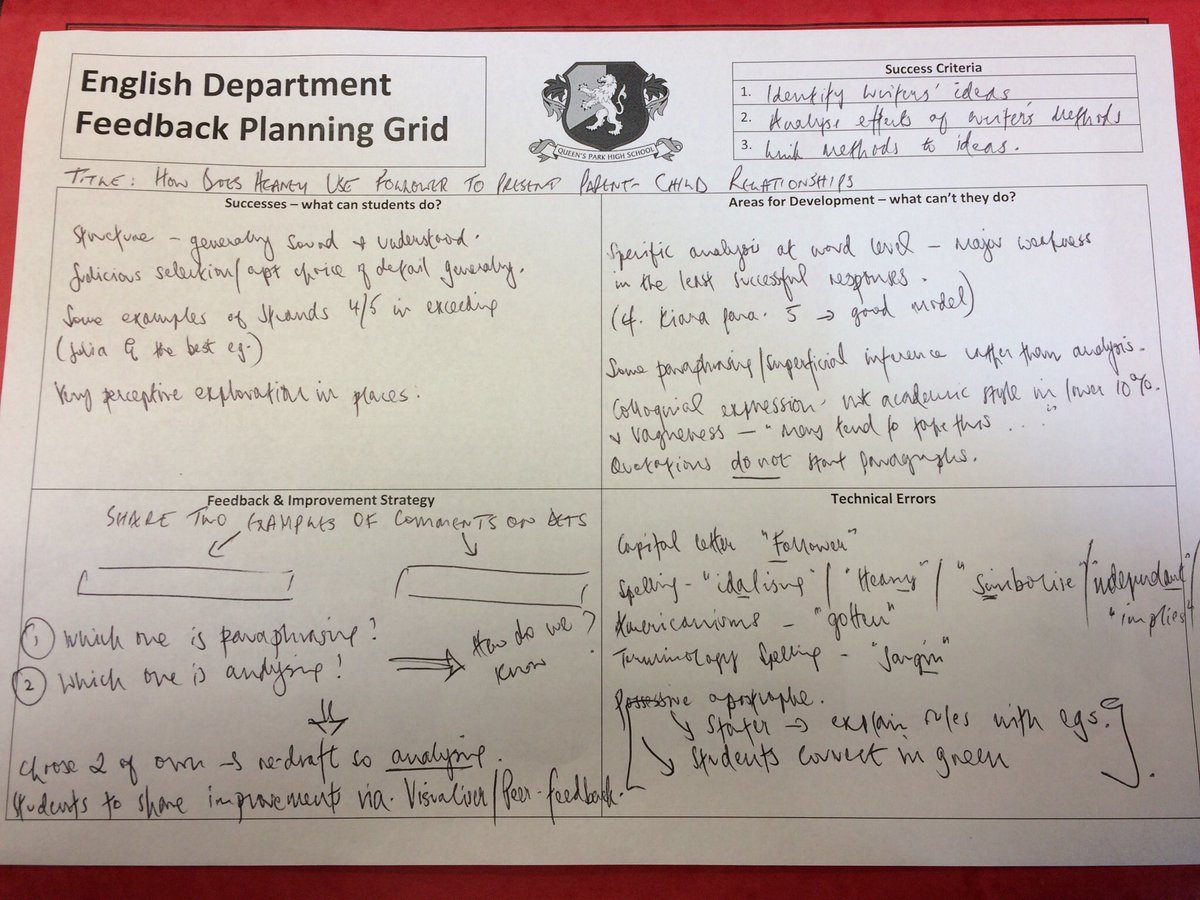 English Department
Feedback Planning Grid
QUEEN'S PARK HIGH SCHOOL
Success Criteria
1. Identify writers' ideas
2. Analyse effects of writer's methods
3. Link methods to ideas.
TITLE: HOW DOES HEANEY USE FOLLOWER TO PRESENT PARENT-CHILD RELATIONSHIPS
Successes – what can students do?
Structure – generally sound & understood.
Judicious selection/apt choice of detail generally.
Some examples of strands 4/5 in exceeding
(Julia the best eg.)
Very perceptive exploration in places.
Areas for Development – what can't they do?
Specific analysis at word level – major weakness
in the least successful responses.
(cf. Kiara para. 5 → good model)
Some paraphrasing/superficial inference rather than analysis.
Colloquial expression – not academic style in lower 10%.
& vagueness – "Many tend to take this . . ."
Quotations do not start paragraphs.
Feedback & Improvement Strategy
SHARE TWO EXAMPLES OF COMMENTS ON
① Which one is paraphrasing?
② Which one is analysing?
How do we know?
Chose 2 of own → re-draft so analysing.
Students to share improvement via. Visualiser/Peer-feedback.
Technical Errors
Capital letter "Follower"
Spelling – "idalising" / "Heany" / "Simbolise" / "independant" / "implies"
Americanisms – "gotten"
Terminology Spelling –
Possessive apostrophe.
↘ Starter → explain rules with egs.
↘ Students correct in green